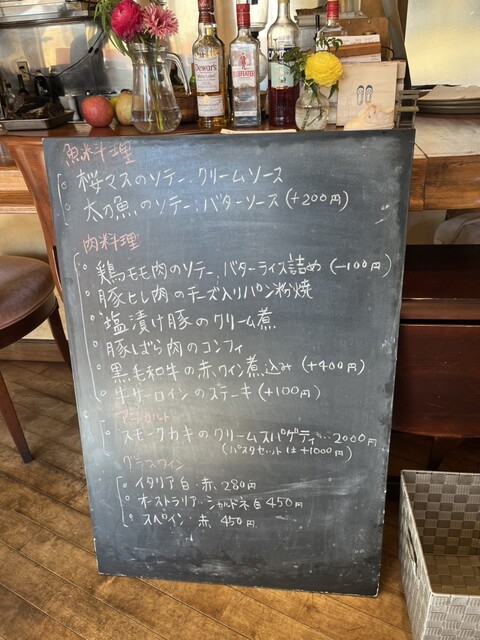 Dewar's
BEEFEATER
魚料理
桜マスのソテー クリームソース
太刀魚のソテー バターソース (+200円)
肉料理
鶏モモ肉のソテー、バターライス詰め (-100円)
豚ヒレ肉のチーズ入りパン粉焼
塩漬け豚のクリーム煮
豚ばら肉のコンフィ
黒毛和牛の赤ワイン煮込み (+400円)
牛サーロインのステーキ (+100円)
アラカルト
スモークカキのクリームスパゲティ…2000円
(パスタセットは+1000円)
グラスワイン
イタリア白・赤 280円
オーストラリア・シャルドネ白 450円
スペイン・赤 450円